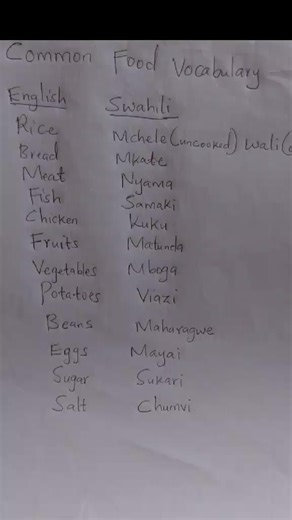 Common Food Vocabulary
English Swahili
Rice Mchele (uncooked) Wali (
Bread Mkate
Meat Nyama
Fish Samaki
Chicken Kuku
Fruits Matunda
Vegetables Mboga
Potatoes Viazi
Beans Maharagwe
Eggs Mayai
Sugar Sukari
Salt Chumvi